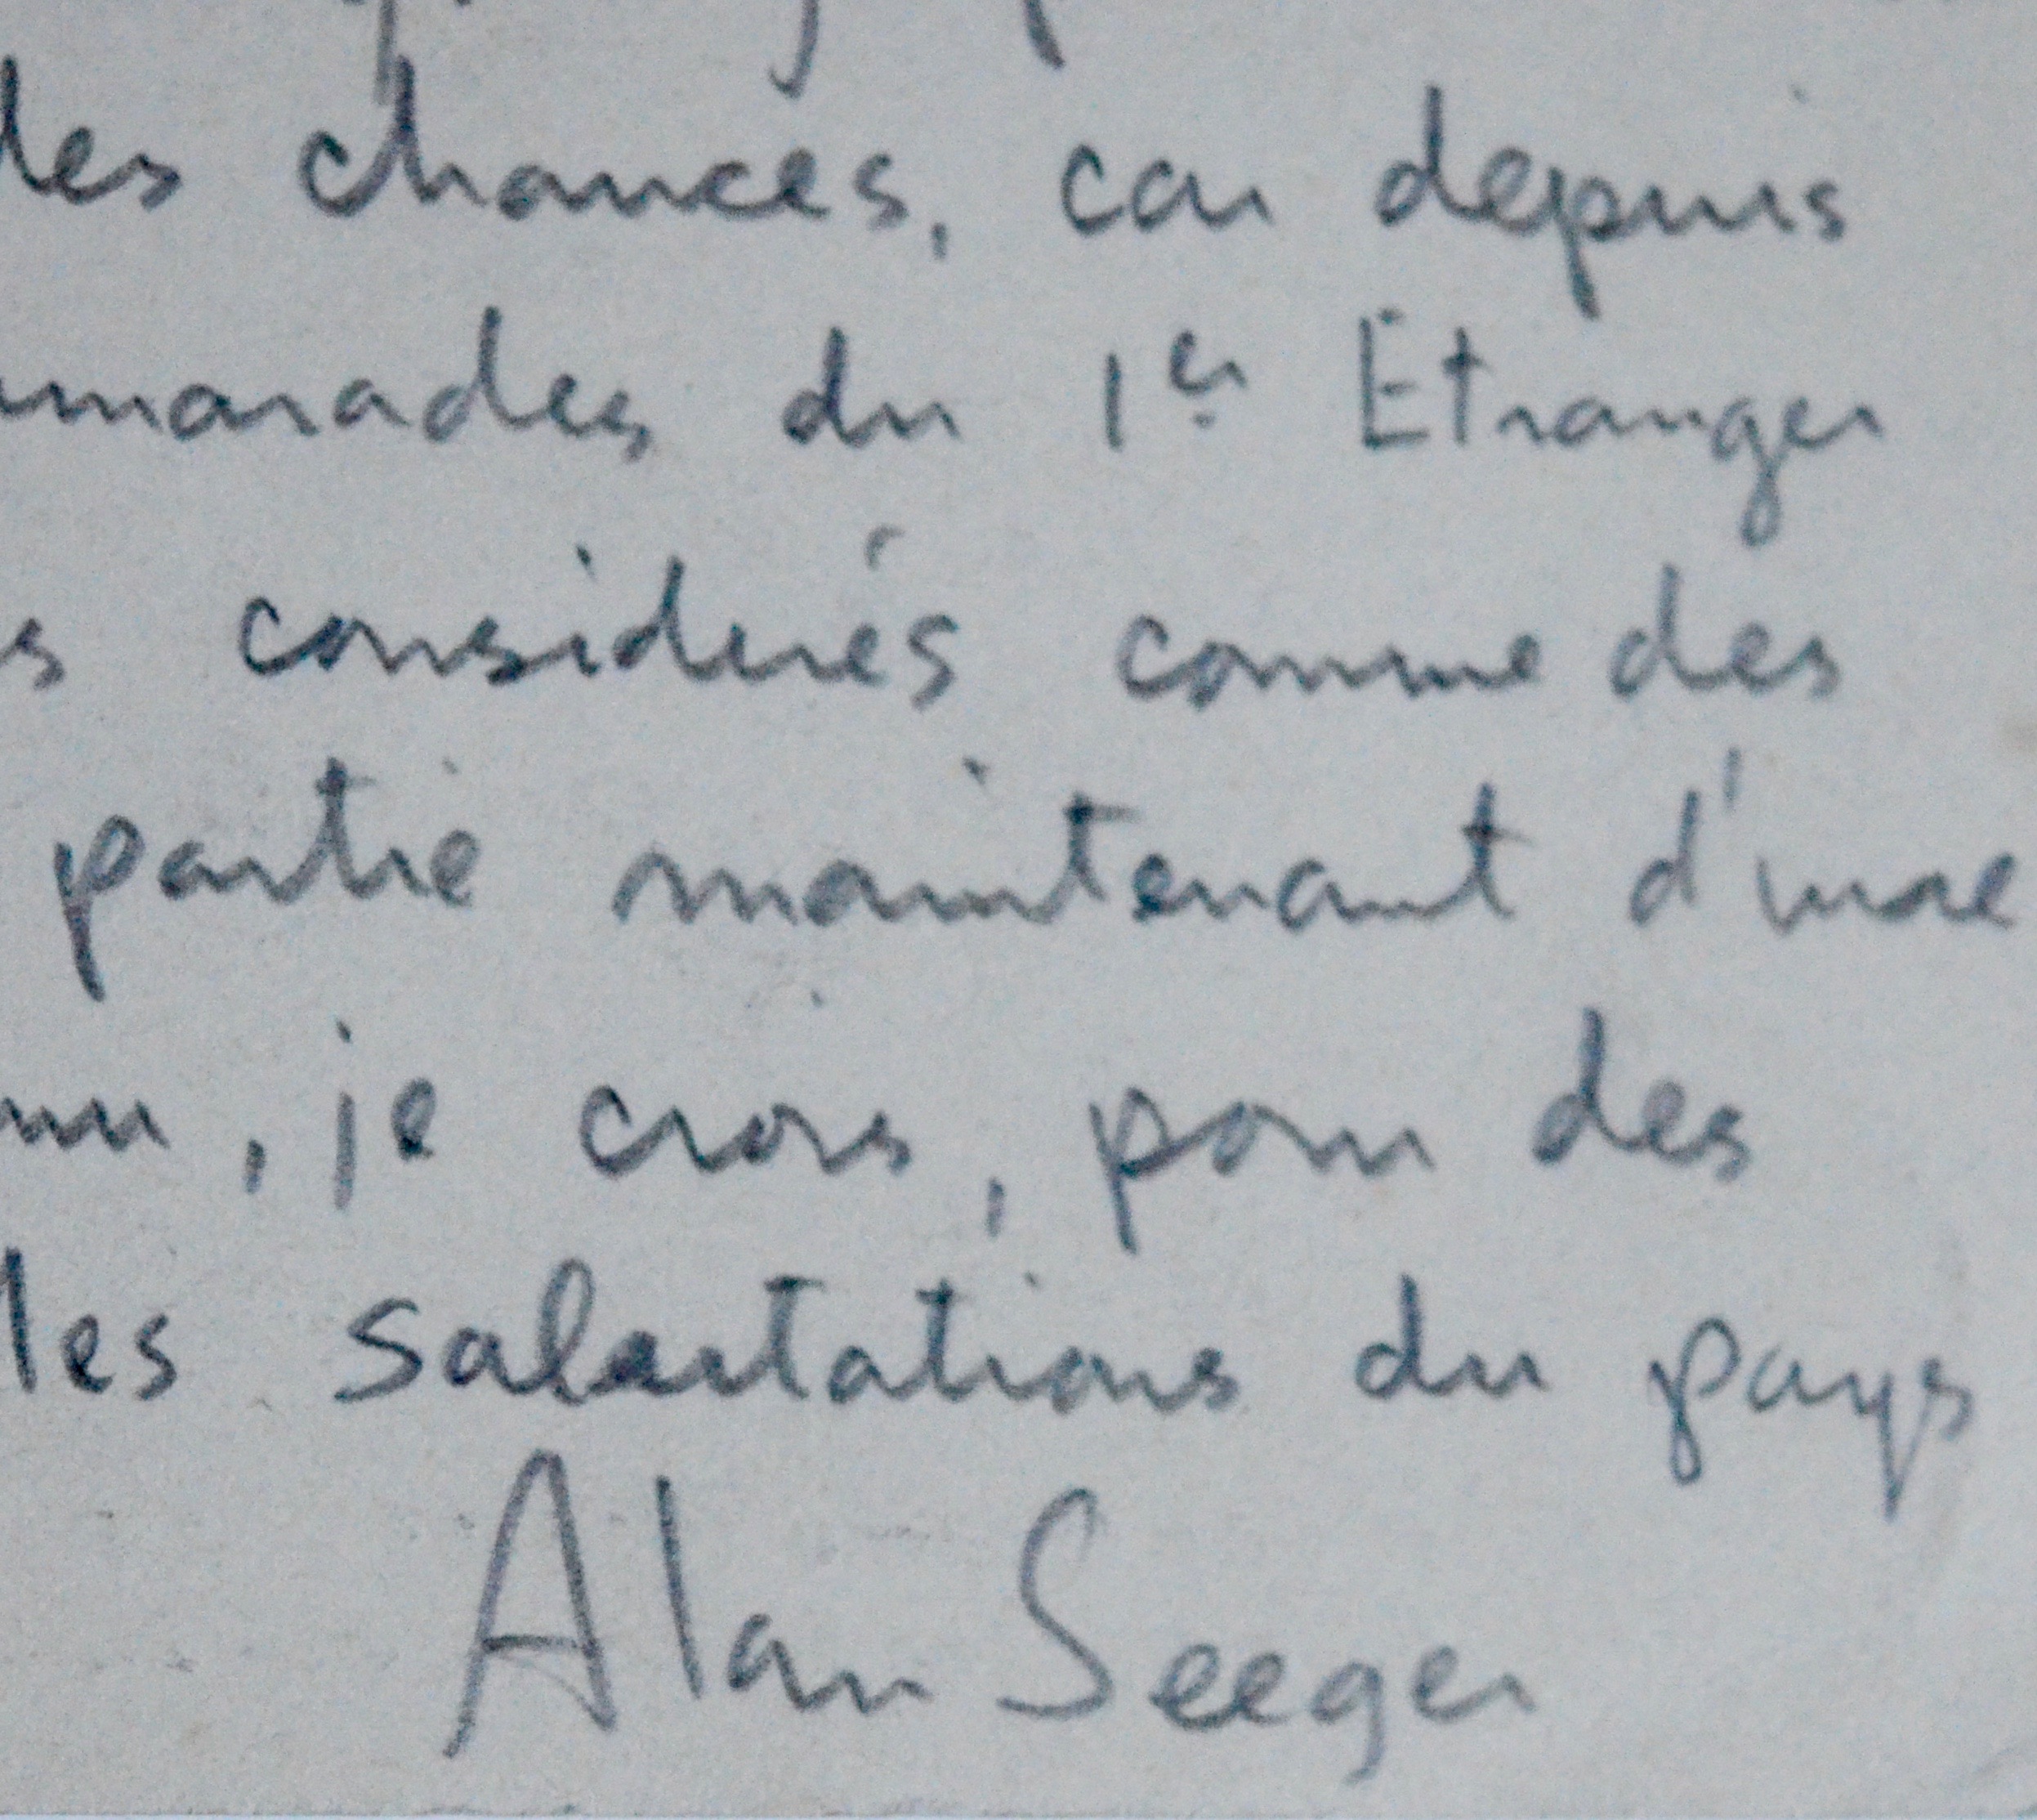 des chances, car depuis
camarades du 1er Etranger
considerés comme des
partie maintenant d'une
, je crois, pour des
les salutations du pays
Alan Seeger